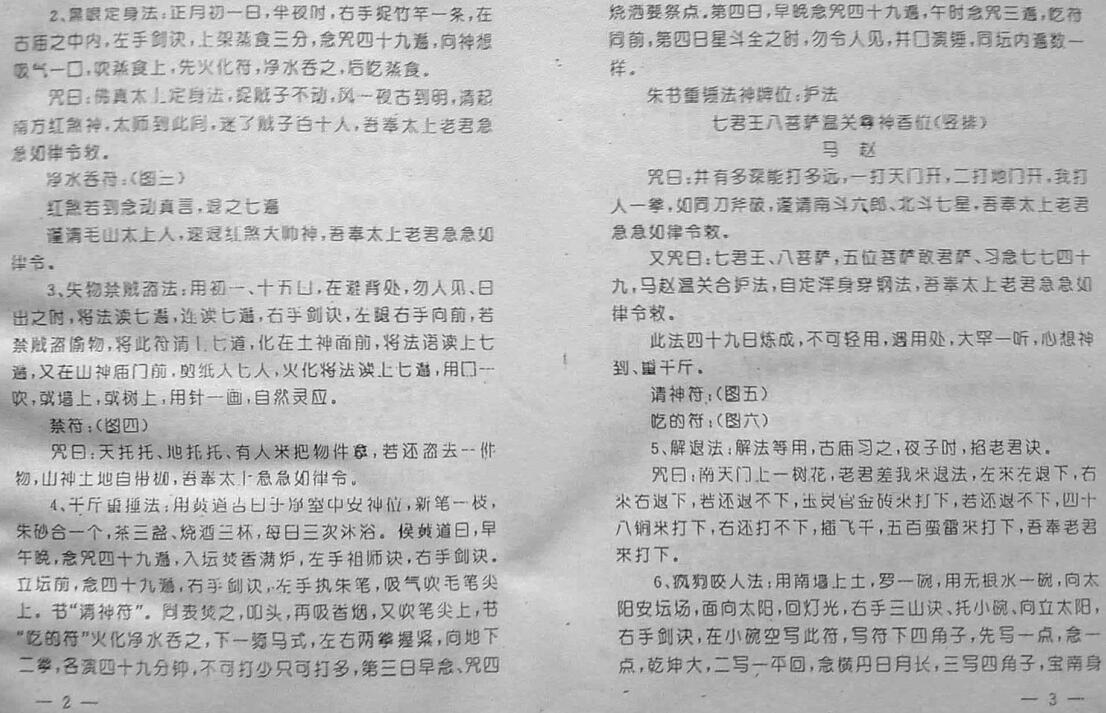 2、黑眼定身法:正月初一日,半夜时,右手捉竹竿一条,在
古庙之中内,左手剑诀,上架蒸食三分,念咒四十九遍,向神想
吸气一口,吹蒸食上,先火化符,净水吞之,后吃蒸食。
咒曰:佛真太上定身法,捉贼子不动,风一夜古到明,清起
南方红煞神,太师到此间,迷了贼子百十人,吾奉太上老君急
急如律令敕。
净水吞符:(图三)
红煞若到念动真言,退之七遍
谨请毛山太上人,速退红煞大帅神,吾奉太上老君急急如
律令。
3、失物禁贼盗法:用初一、十五日,在避背处,勿人见、日
出之时,将法读七遍,连读七遍,右手剑诀,左腿右手向前,若
禁贼盗偷物,将此符清上七道,化在土神面前,将法语读上七
遍,又在山神庙门前,剪纸人七人,火化将法读上七遍,用口一
吹,或墙上,或树上,用针一画,自然灵应。
禁符:(图四)
咒曰:天托托、地托托、有人米把物件拿,若还盗去一件
物,山神土地自带枷,吾奉太上急急如律令。
4、千斤重捶法:用黄道吉日于净室中安神位,新笔一枝,
朱砂合一个,茶三盏、烧酒三杯,每日三次沐浴。候黄道日,早
午晚,念咒四十九遍,入坛焚香满炉,左手祖师诀,右手剑诀。
立坛前,念四十九遍,右手剑诀,左手执朱笔,吸气吹毛笔尖
上。书“请神符”。同表焚之,叩头,再吸香烟,又吹笔尖上,书
“吃的符”火化净水吞之,下一骑马式,左右两拳握紧,向地下
二拳,各演四十九分钟,不可打少只可打多,第三日早念、咒四
— 2 —
烧酒要祭点。第四日,早晚念咒四十九遍,午时念咒三遍,吃符
同前,第四日星斗全之时,勿令人见,井口演锤,同坛内遍数一
样。
朱书重锤法神牌位:护法
七君王八菩萨温关尊神香位(竖排)
马 赵
咒曰:井有多深能打多远,一打天门开,二打地门开,我打
人一拳,如同刀斧破,谨请南斗六郎、北斗七星,吾奉太上老君
急急如律令敕。
又咒曰:七君王、八菩萨,五位菩萨敢君萨、习念七七四十
九,马赵温关合护法,自定浑身穿钢法,吾奉太上老君急急如
律令敕。
此法四十九日炼成,不可轻用,遇用处,大罕一听,心想神
到、重千斤。
请神符:(图五)
吃的符:(图六)
5、解退法:解法等用,古庙习之,夜子时,掐老君诀。
咒曰:南天门上一树花,老君差我来退法,左来左退下,右
米右退下,若还退不下,玉灵官金砖米打下,若还退不下,四十
八锏米打下,右还打不下,插飞千,五百蛮雷米打下,吾奉老君
来打下。
6、疯狗咬人法:用南墙上土,罗一碗,用无根水一碗,向太
阳安坛场,面向太阳,回灯光,右手三山诀、托小碗、向立太阳,
右手剑诀,在小碗空写此符,写符下四角子,先写一点,念一
点,乾坤大,二写一平回,念横丹日月长,三写四角子,宝南身
— 3 —